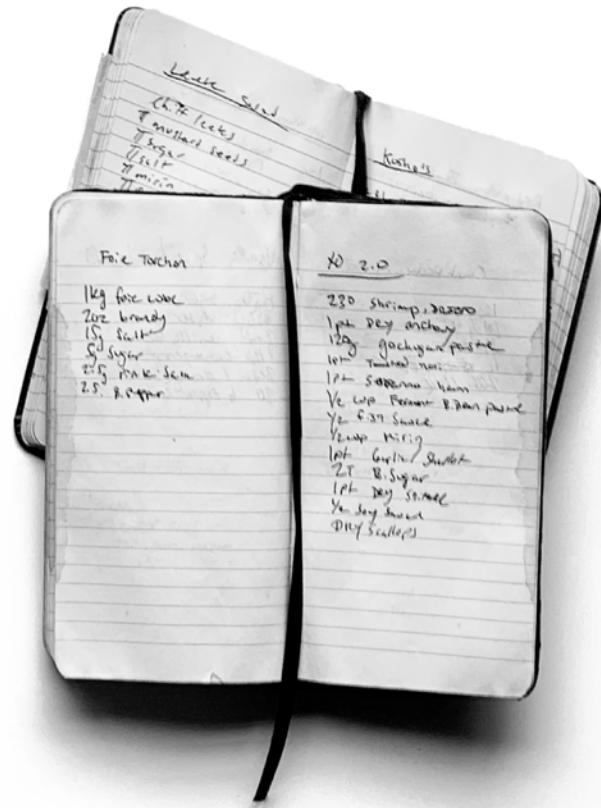 Leek Salad
Chiff leeks
mustard seeds
sugar
salt
mirin
Foie Torchon
1kg foie lobe
2oz brandy
15g Salt
5g Sugar
2.5g pink salt
2.5 B. Pepper
XO 2.0
230 Shrimp, Dried
1pt Dry anchovy
120g gochujan paste
1pt Toasted nori
1pt Soppressa ham
1/2 cup Ferment B. Bean paste
1/2 fish Sauce
1/2 cup Mirin
1pt Garlic Shallot
2T B. Sugar
1pt Dry
1/2 Soy Sauce
Dry Scallops